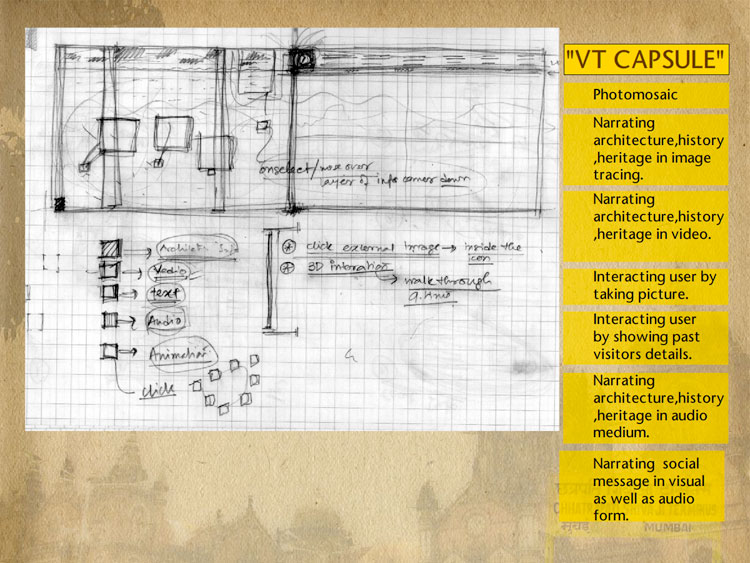 "VT CAPSULE"
Photomosaic
Narrating
architecture,history
,heritage in image
tracing.
Narrating
architecture,history
,heritage in video.
Interacting user by
taking picture.
Interacting user
by showing past
visitors details.
Narrating
architecture,history
,heritage in audio
medium.
Narrating social
message in visual
as well as audio
form.
MUMBAI
onselect/
layer of info comes down
Vedio
text
Audio
click
click external image → inside the
3D
walkthrough